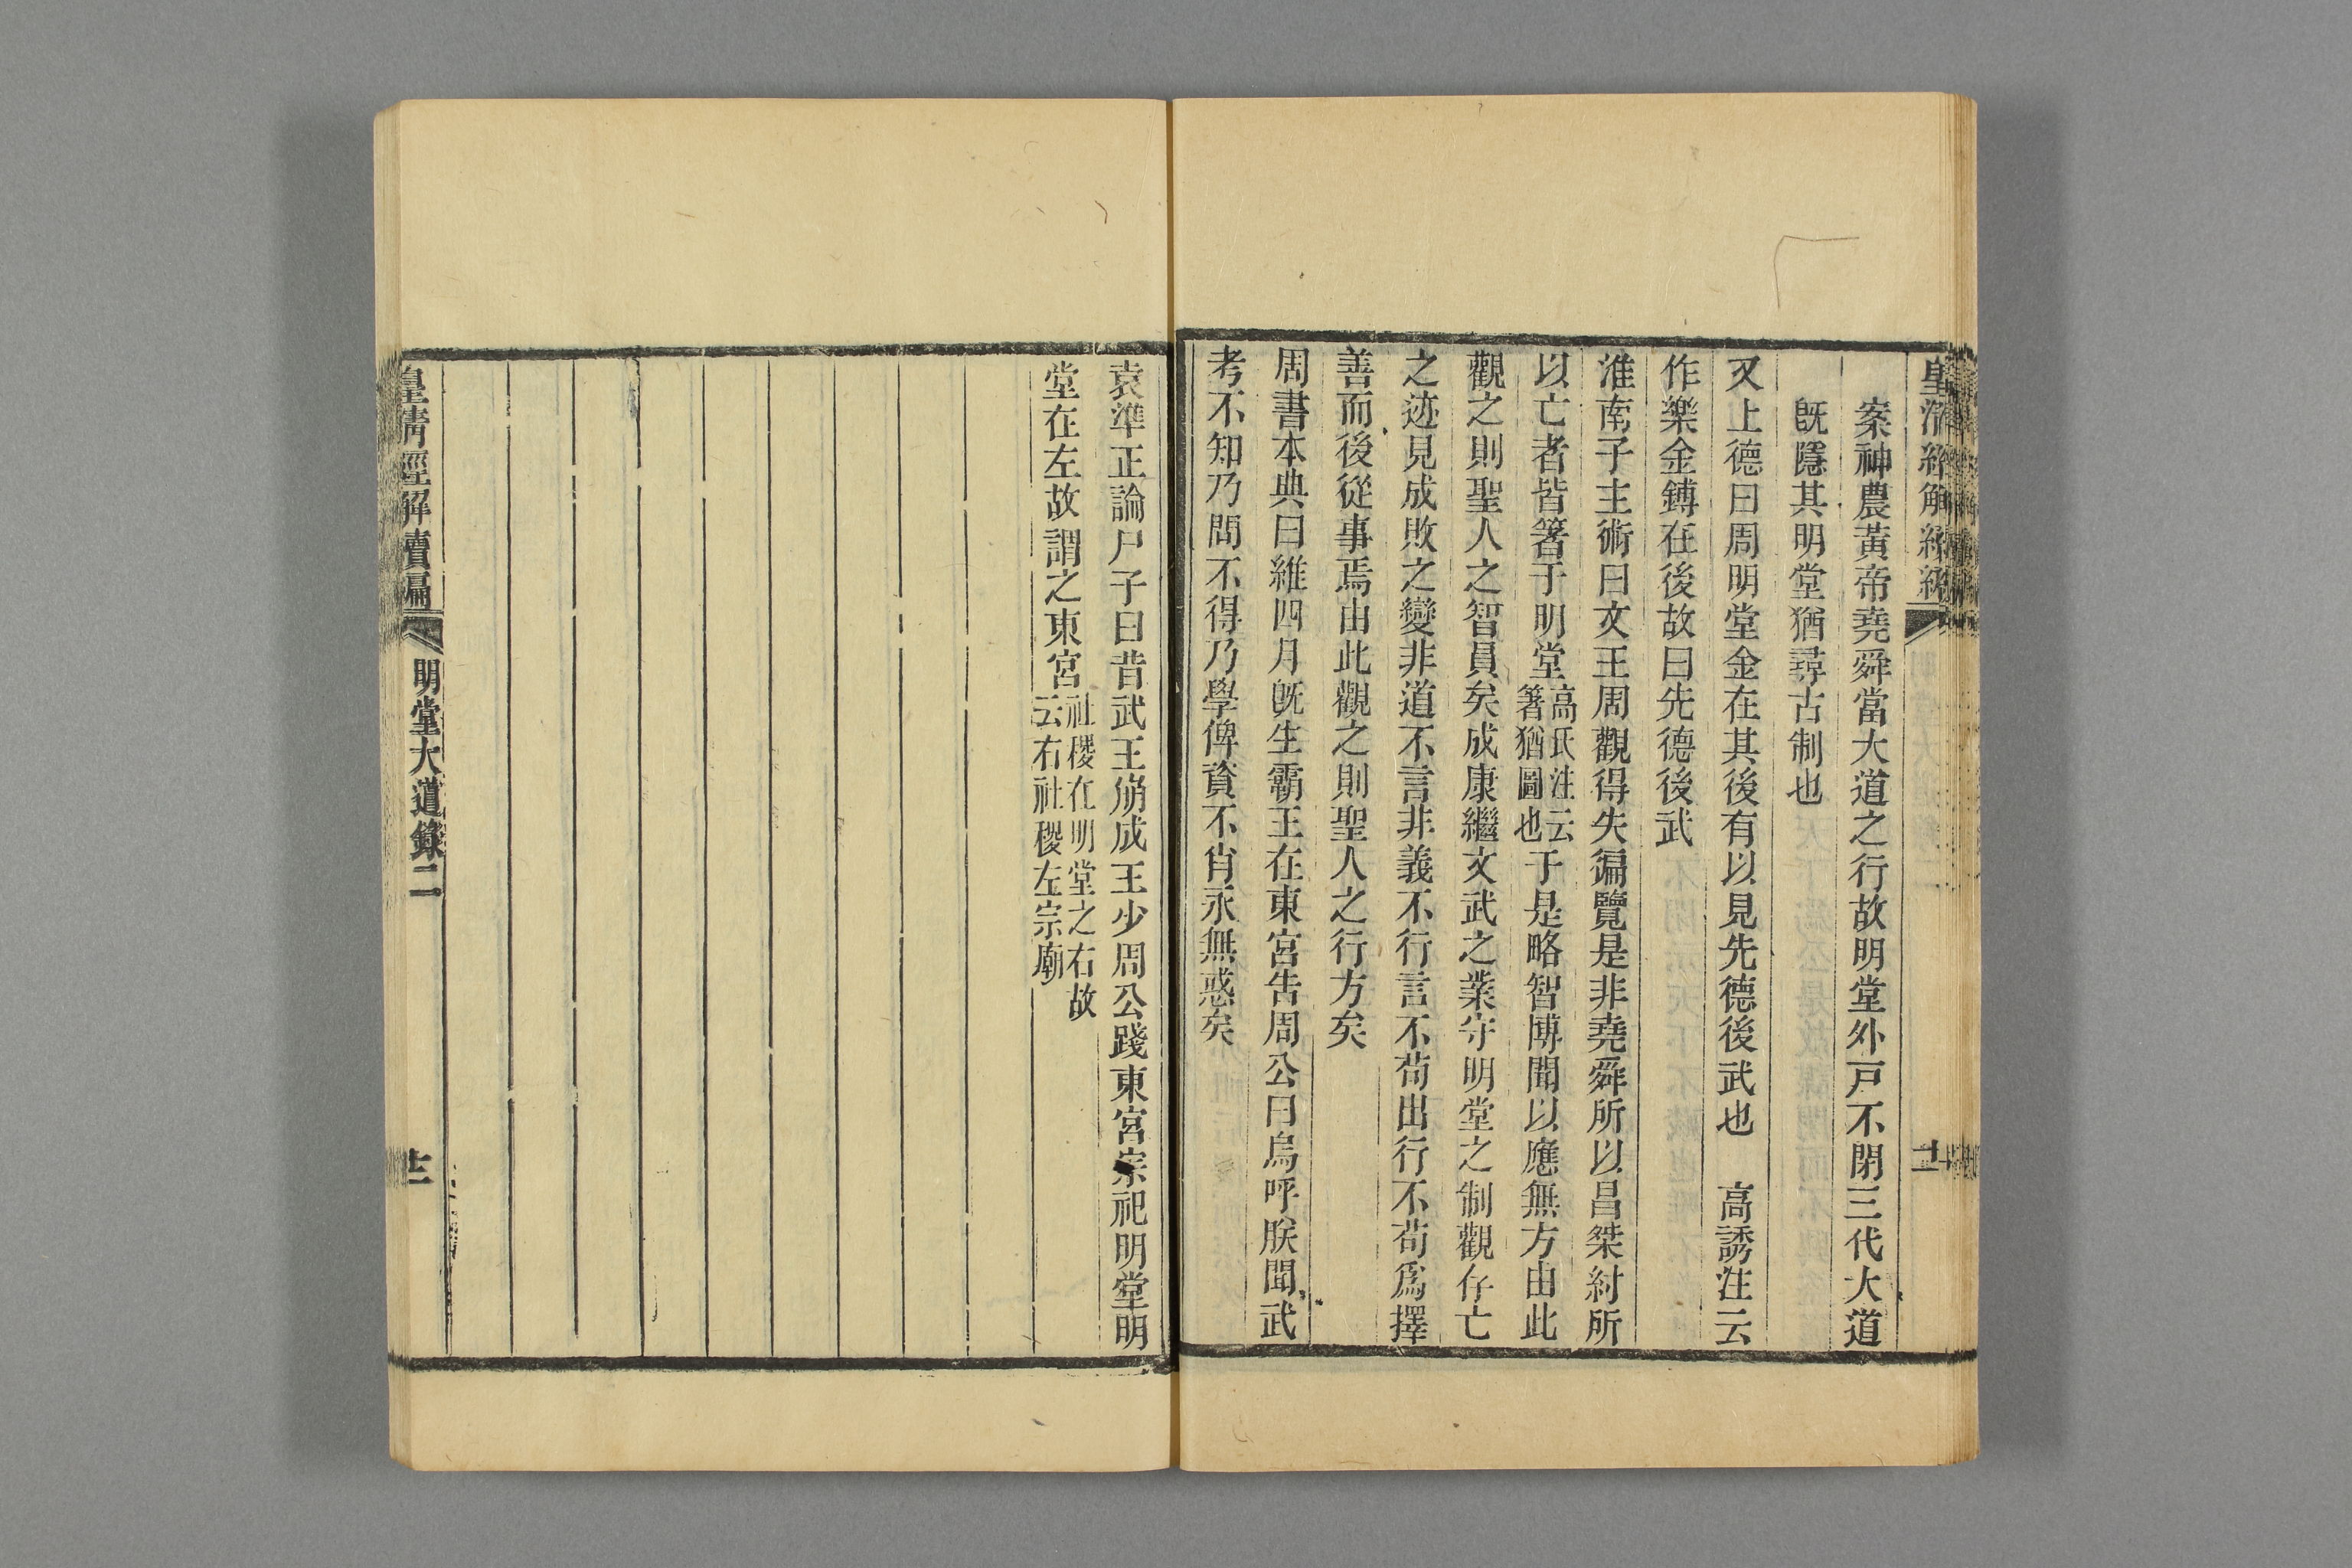 案神農黃帝堯舜當大道之行故明堂外戸不閉三代大道
旣隱其明堂猶尋古制也
又上德曰周明堂金在其後有以見先德後武也　高誘注云
作樂金鏄在後故曰先德後武
淮南子主術曰文王周觀得失徧覽是非堯舜所以昌桀紂所
以亡者皆箸于明堂高氏注云箸猶圖也于是略智博聞以應無方由此
觀之則聖人之智員矣成康繼文武之業守明堂之制觀存亡
之迹見成敗之變非道不言非義不行言不茍出行不茍爲擇
善而後從事焉由此觀之則聖人之行方矣
周書本典曰維四月旣生霸王在東宮告周公曰烏呼朕聞武
考不知乃問不得乃學俾資不肖永無惑矣
袁準正論尸子曰昔武王崩成王少周公踐東宮宗祀明堂明
堂在左故謂之東宮社稷在明堂之右故云右社稷左宗廟
皇淸經解續編
明堂大道錄二